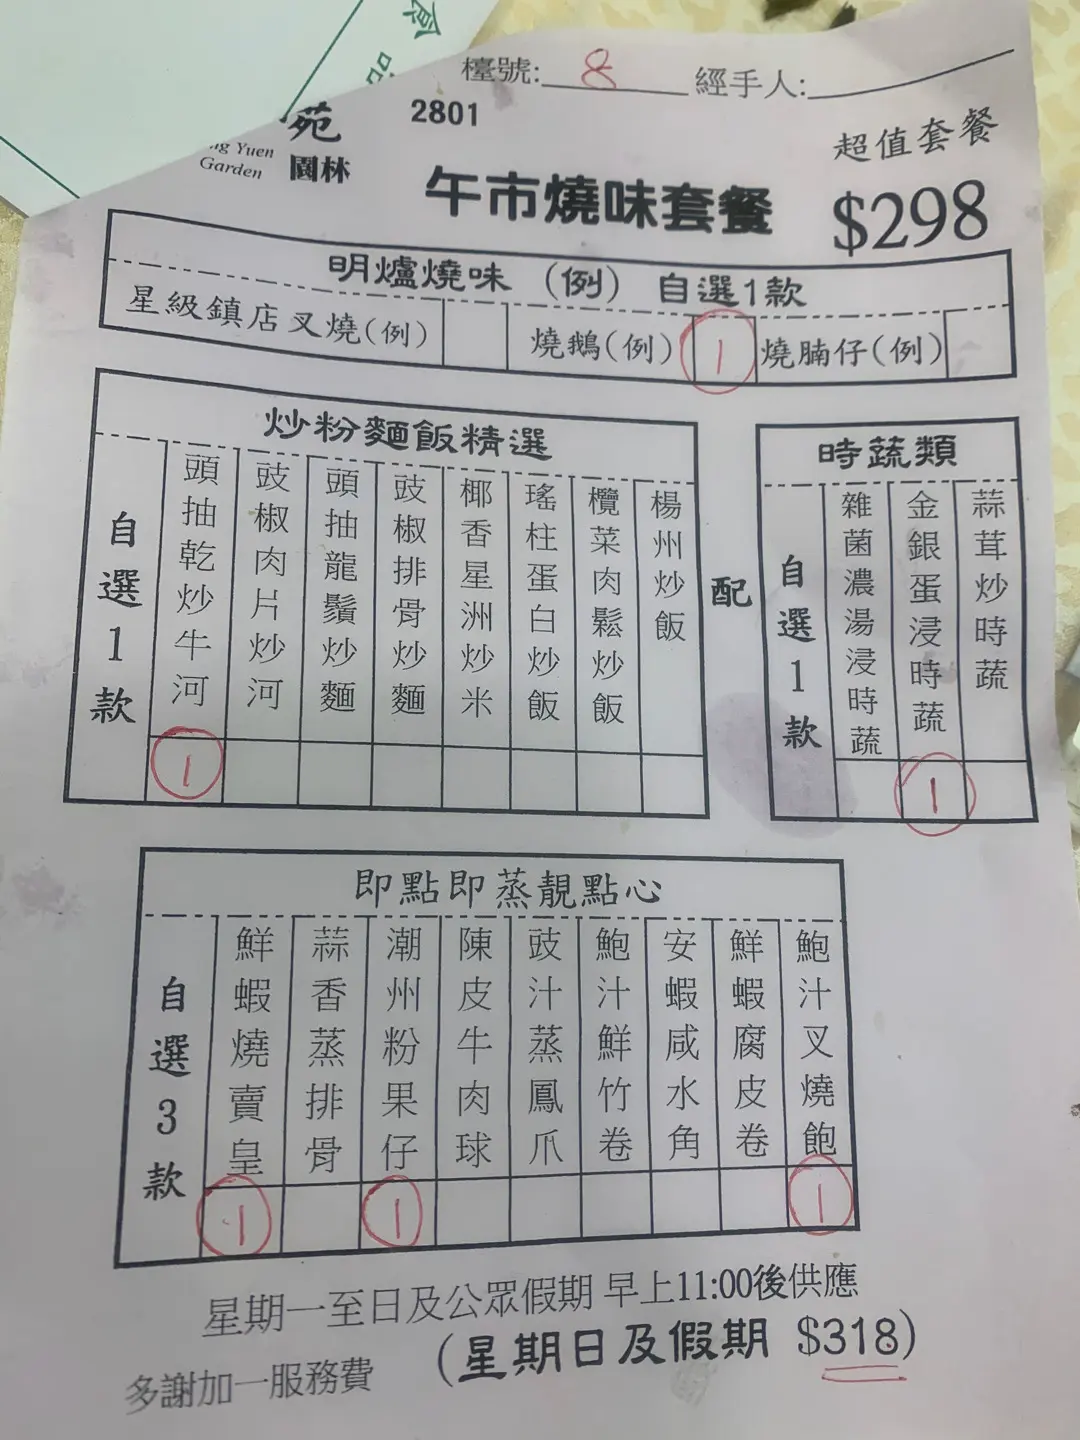 食品
檯號: 8 經手人:
苑 2801
ng Yuen Garden 園林
超值套餐
午市燒味套餐 $298
明爐燒味 (例) 自選1款
星級鎮店叉燒(例) 燒鵝(例) 1 燒腩仔(例)
炒粉麵飯精選
自選1款
頭抽乾炒牛河 1
豉椒肉片炒河
頭抽龍鬚炒麵
豉椒排骨炒麵
椰香星洲炒米
瑤柱蛋白炒飯
欖菜肉鬆炒飯
楊州炒飯
配
時蔬類
自選1款
雜菌濃湯浸時蔬
金銀蛋浸時蔬 1
蒜茸炒時蔬
即點即蒸靚點心
自選3款
鮮蝦燒賣皇 1
蒜香蒸排骨
潮州粉果仔 1
陳皮牛肉球
豉汁蒸鳳爪
鮑汁鮮竹卷
安蝦咸水角
鮮蝦腐皮卷
鮑汁叉燒飽 1
星期一至日及公眾假期 早上11:00後供應
(星期日及假期 $318)
多謝加一服務費